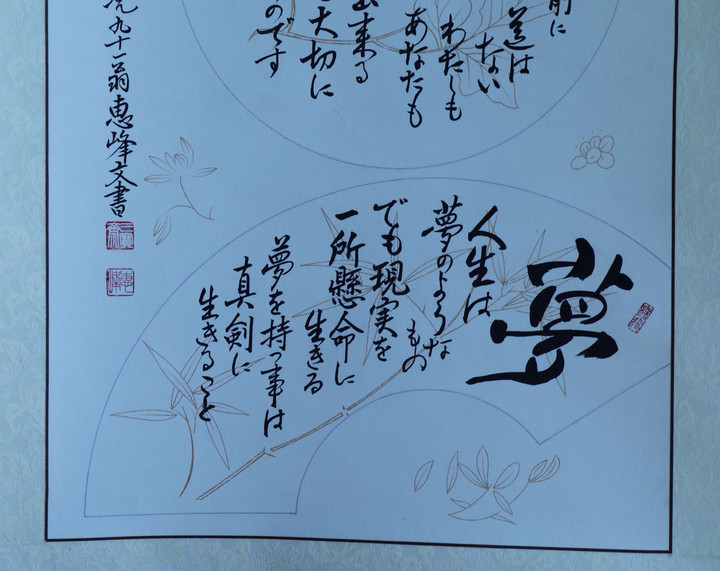 前に
道は
ない
わたしも
あなたも
出来る
大切に
のです
九十一翁恵峰文書
夢
人生は
夢のような
もの
でも現実を
一所懸命に
生きる
夢を持つ事は
真剣に
生きること